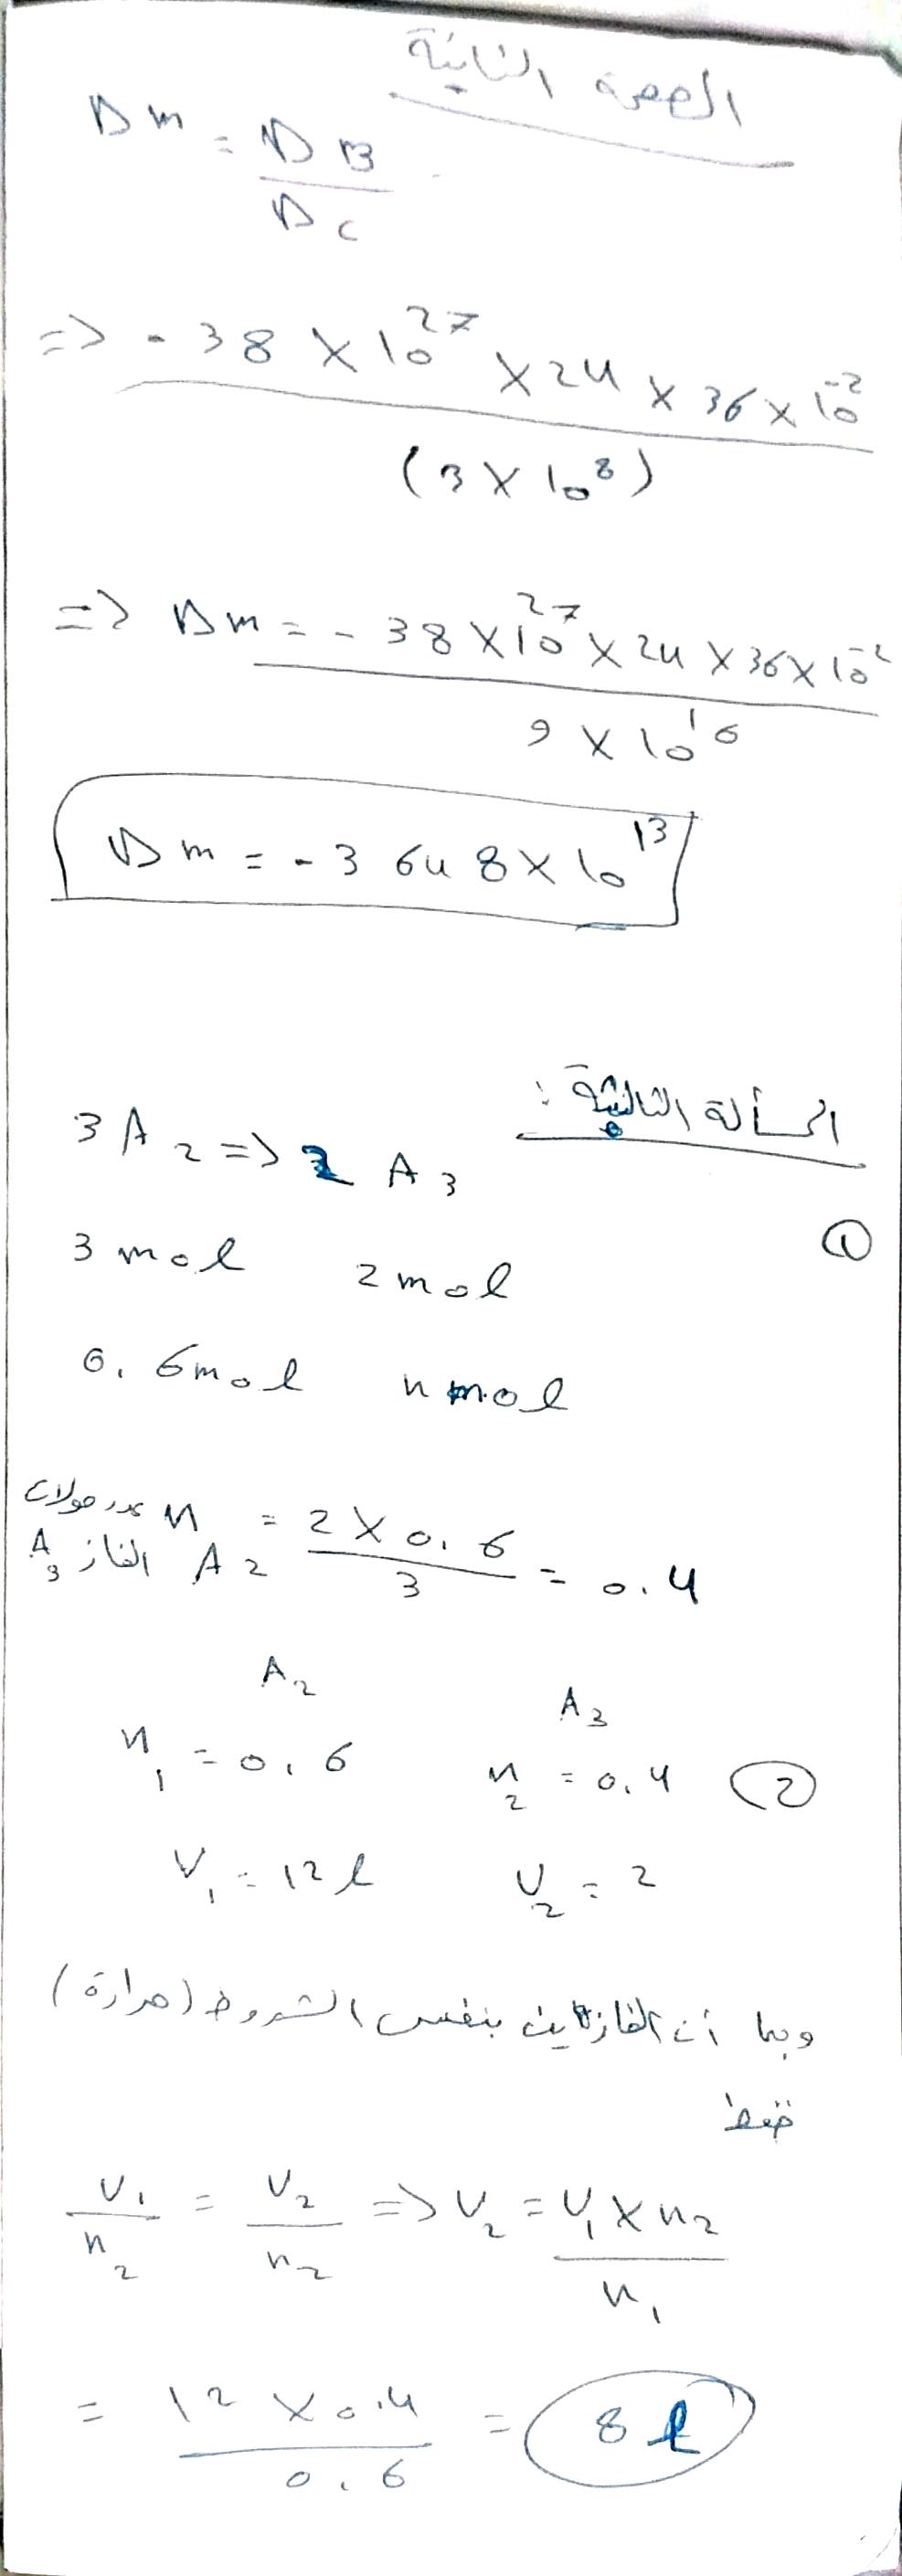 الصفحة الثانية
Δm = ΔB / Δc
=> - 38 × 10^27 × 24 × 36 × 10^-2 / (3 × 10^8)
=> Δm = - 38 × 10^27 × 24 × 36 × 10^-2 / 9 × 10^16
Δm = - 3648 × 10^13
المسألة الثالثة :
3 A2 => 2 A3
①
3 mol 2 mol
0.6 mol n mol
عدد مولات الغاز A3 n A2 = 2 × 0.6 / 3 = 0.4
A2 A3
n1 = 0.6 n2 = 0.4 ②
V1 = 12 l V2 = ?
وبما أن الغازاين بنفس الشروط (حرارة)
ضغط
V1 / n2 = V2 / n2 => V2 = V1 × n2 / n1
= 12 × 0.4 / 0.6 = 8 l